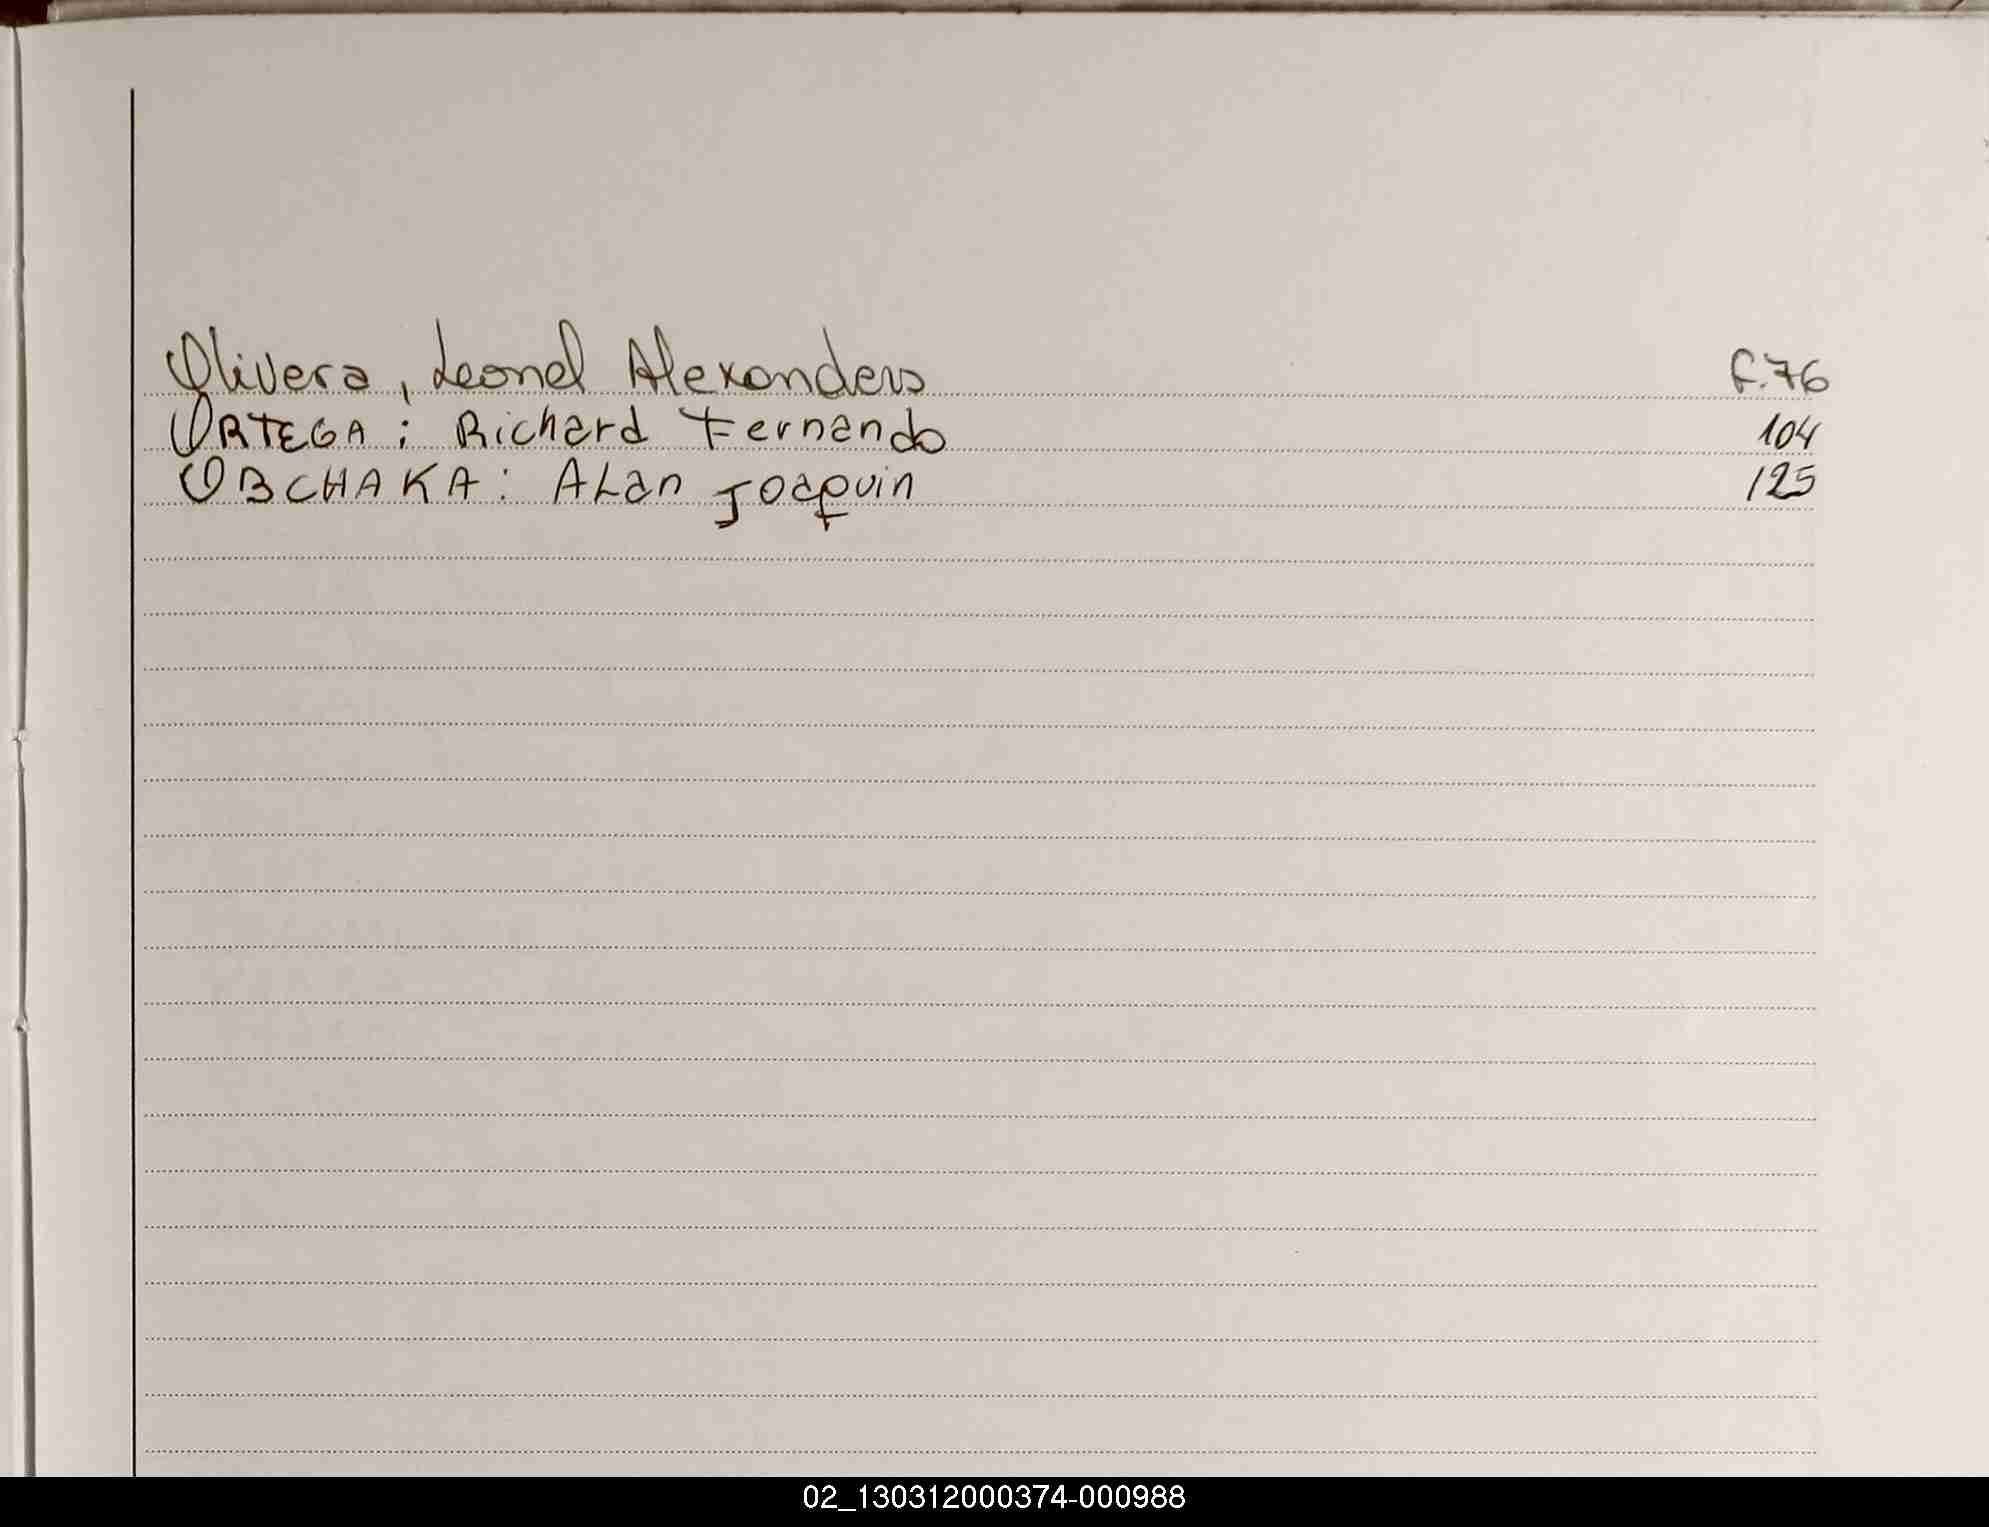 Olivera, Leonel Alexanders f.76
ORTEGA : Richard Fernando 104
OBCHAKA : ALan Joaquin 125
02_130312000374-000988